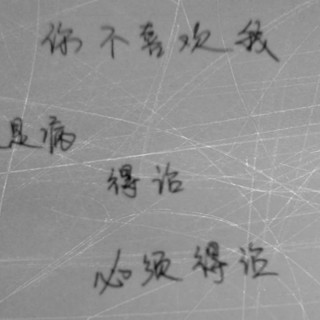 你不喜欢我
是病
得治
必须得治